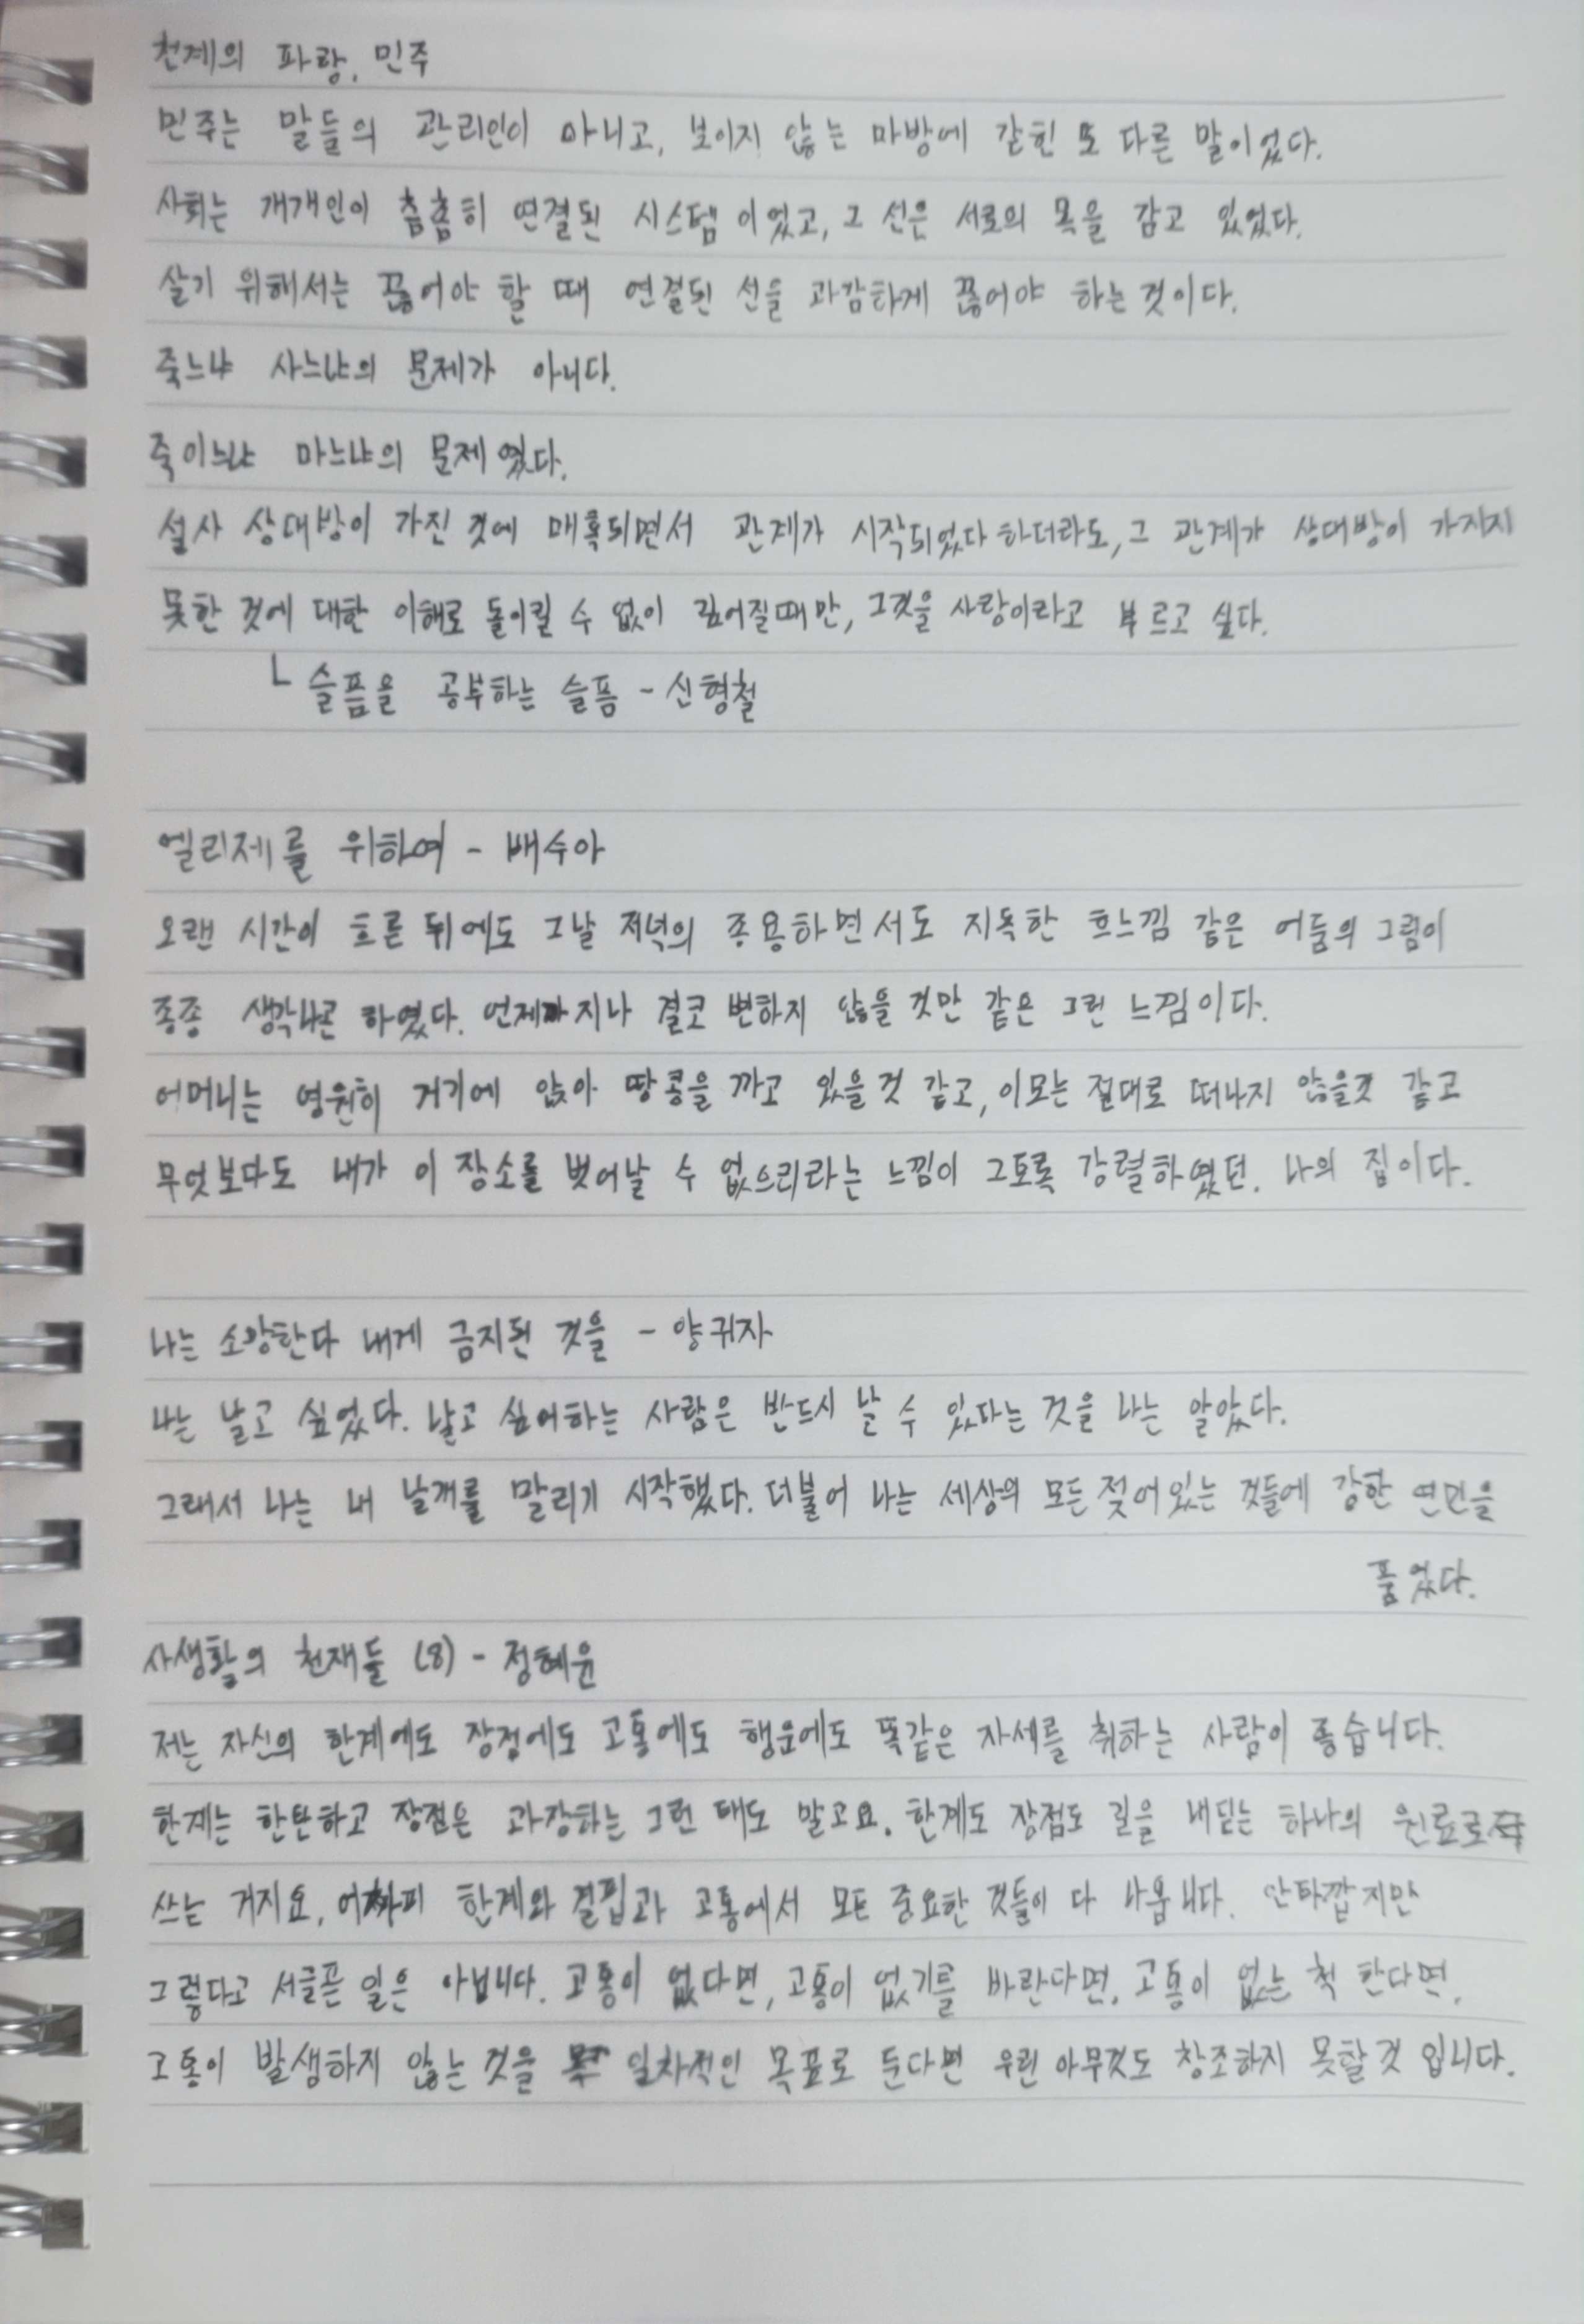 천계의 파랑, 민주
민주는 말들의 관리인이 아니고, 보이지 않는 마방에 갇힌 또 다른 말이었다.
사회는 개개인이 촘촘히 연결된 시스템 이었고, 그 선은 서로의 목을 감고 있었다.
살기 위해서는 끊어야 할 때 연결된 선을 과감하게 끊어야 하는 것이다.
죽느냐 사느냐의 문제가 아니다.
죽이느냐 마느냐의 문제 였다.
설사 상대방이 가진 것에 매혹되면서 관계가 시작되었다 하더라도, 그 관계가 상대방이 가지지
못한 것에 대한 이해로 돌이킬 수 없이 깊어질때만, 그것을 사랑이라고 부르고 싶다.
└ 슬픔을 공부하는 슬픔 - 신형철
엘리제를 위하여 - 배수아
오랜 시간이 흐른 뒤에도 그날 저녁의 조용하면서도 지독한 흐느낌 같은 어둠의 그림이
종종 생각나곤 하였다. 언제까지나 결코 변하지 않을 것만 같은 그런 느낌이다.
어머니는 영원히 거기에 앉아 땅콩을 까고 있을 것 같고, 이모는 절대로 떠나지 않을것 같고
무엇보다도 내가 이 장소를 벗어날 수 없으리라는 느낌이 그토록 강렬하였던. 나의 집이다.
나는 소망한다 내게 금지된 것을 - 양귀자
나는 날고 싶었다. 날고 싶어하는 사람은 반드시 날 수 있다는 것을 나는 알았다.
그래서 나는 내 날개를 말리기 시작했다. 더불어 나는 세상의 모든 젖어있는 것들에 강한 연민을
품었다.
사생활의 천재들 (8) - 정혜윤
저는 자신의 한계에도 장점에도 고통에도 행운에도 똑같은 자세를 취하는 사람이 좋습니다.
한계는 한탄하고 장점은 과장하는 그런 태도 말고요. 한계도 장점도 길을 내딛는 하나의 원료로
쓰는 거지요. 어차피 한계와 결핍과 고통에서 모든 중요한 것들이 다 나옵니다. 안타깝지만
그렇다고 서글픈 일은 아닙니다. 고통이 없다면, 고통이 없기를 바란다면, 고통이 없는 척 한다면,
고통이 발생하지 않는 것을 일차적인 목표로 둔다면 우린 아무것도 창조하지 못할것 입니다.